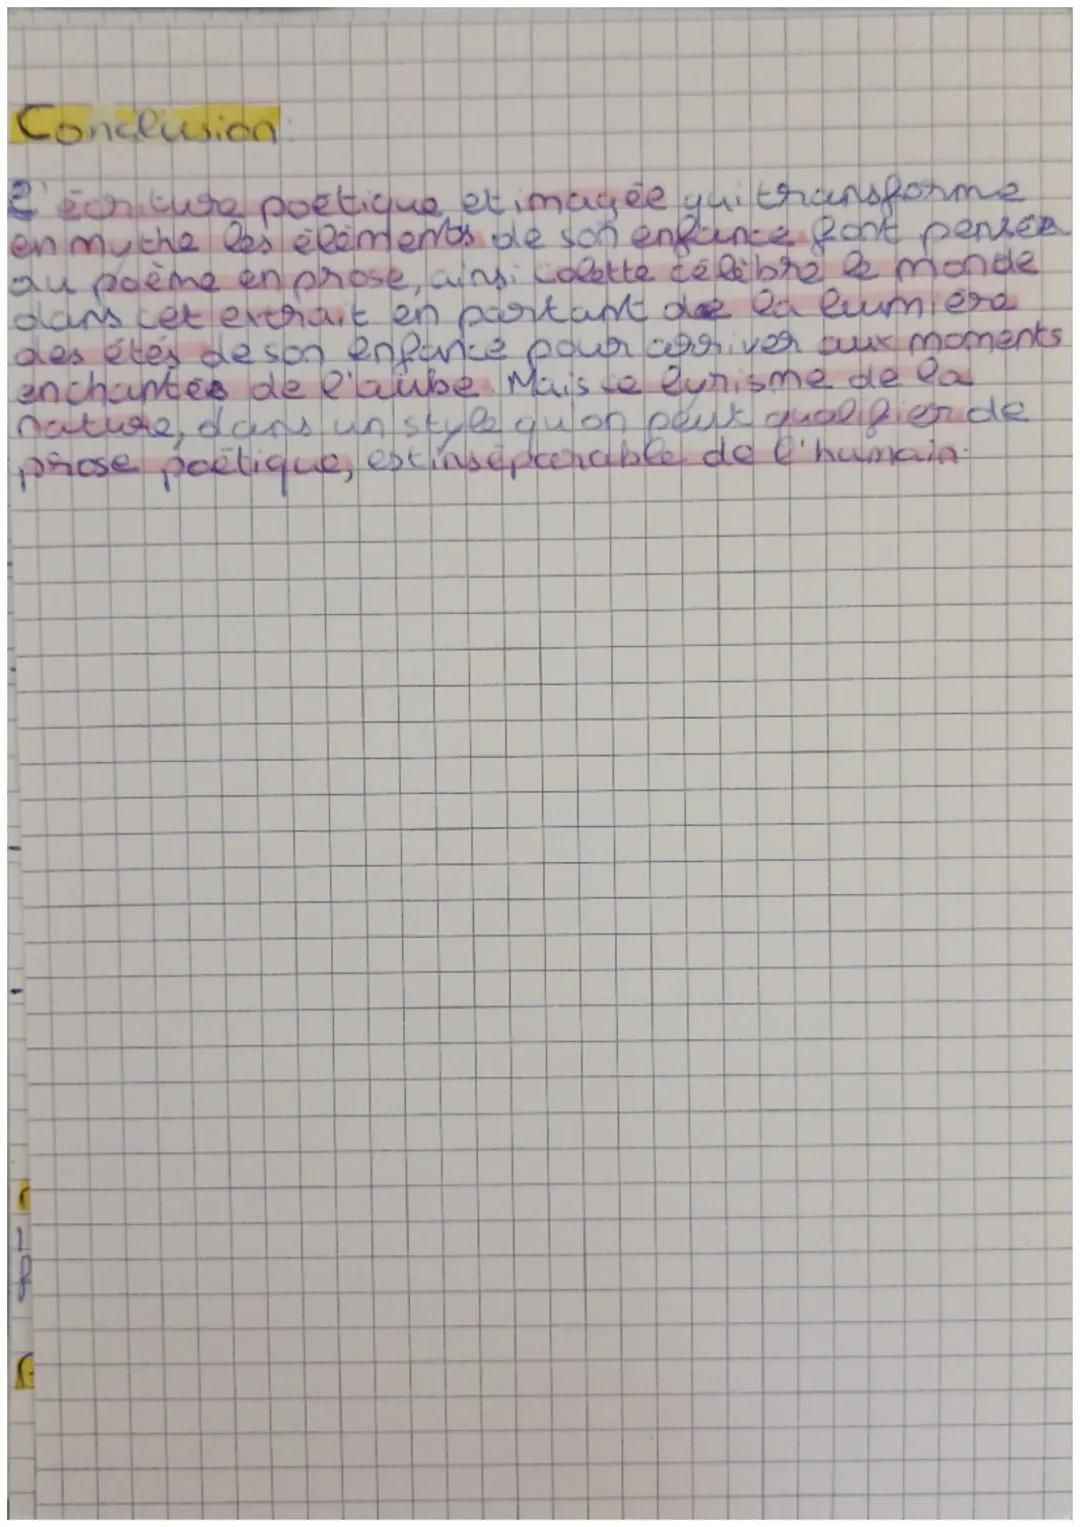 Conclusion:
L'écriture poétique et imagée qui transforme
en mythe les éléments de son enfance font penser
au poème en prose, ainsi Colette célèbre le monde
dans cet extrait en partant de la lumière
des étés de son enfance pour arriver aux moments
enchantés de l'aube. Mais ce lyrisme de la
nature, dans un style qu'on peut qualifier de
prose poétique, est inséparable de l'humain.